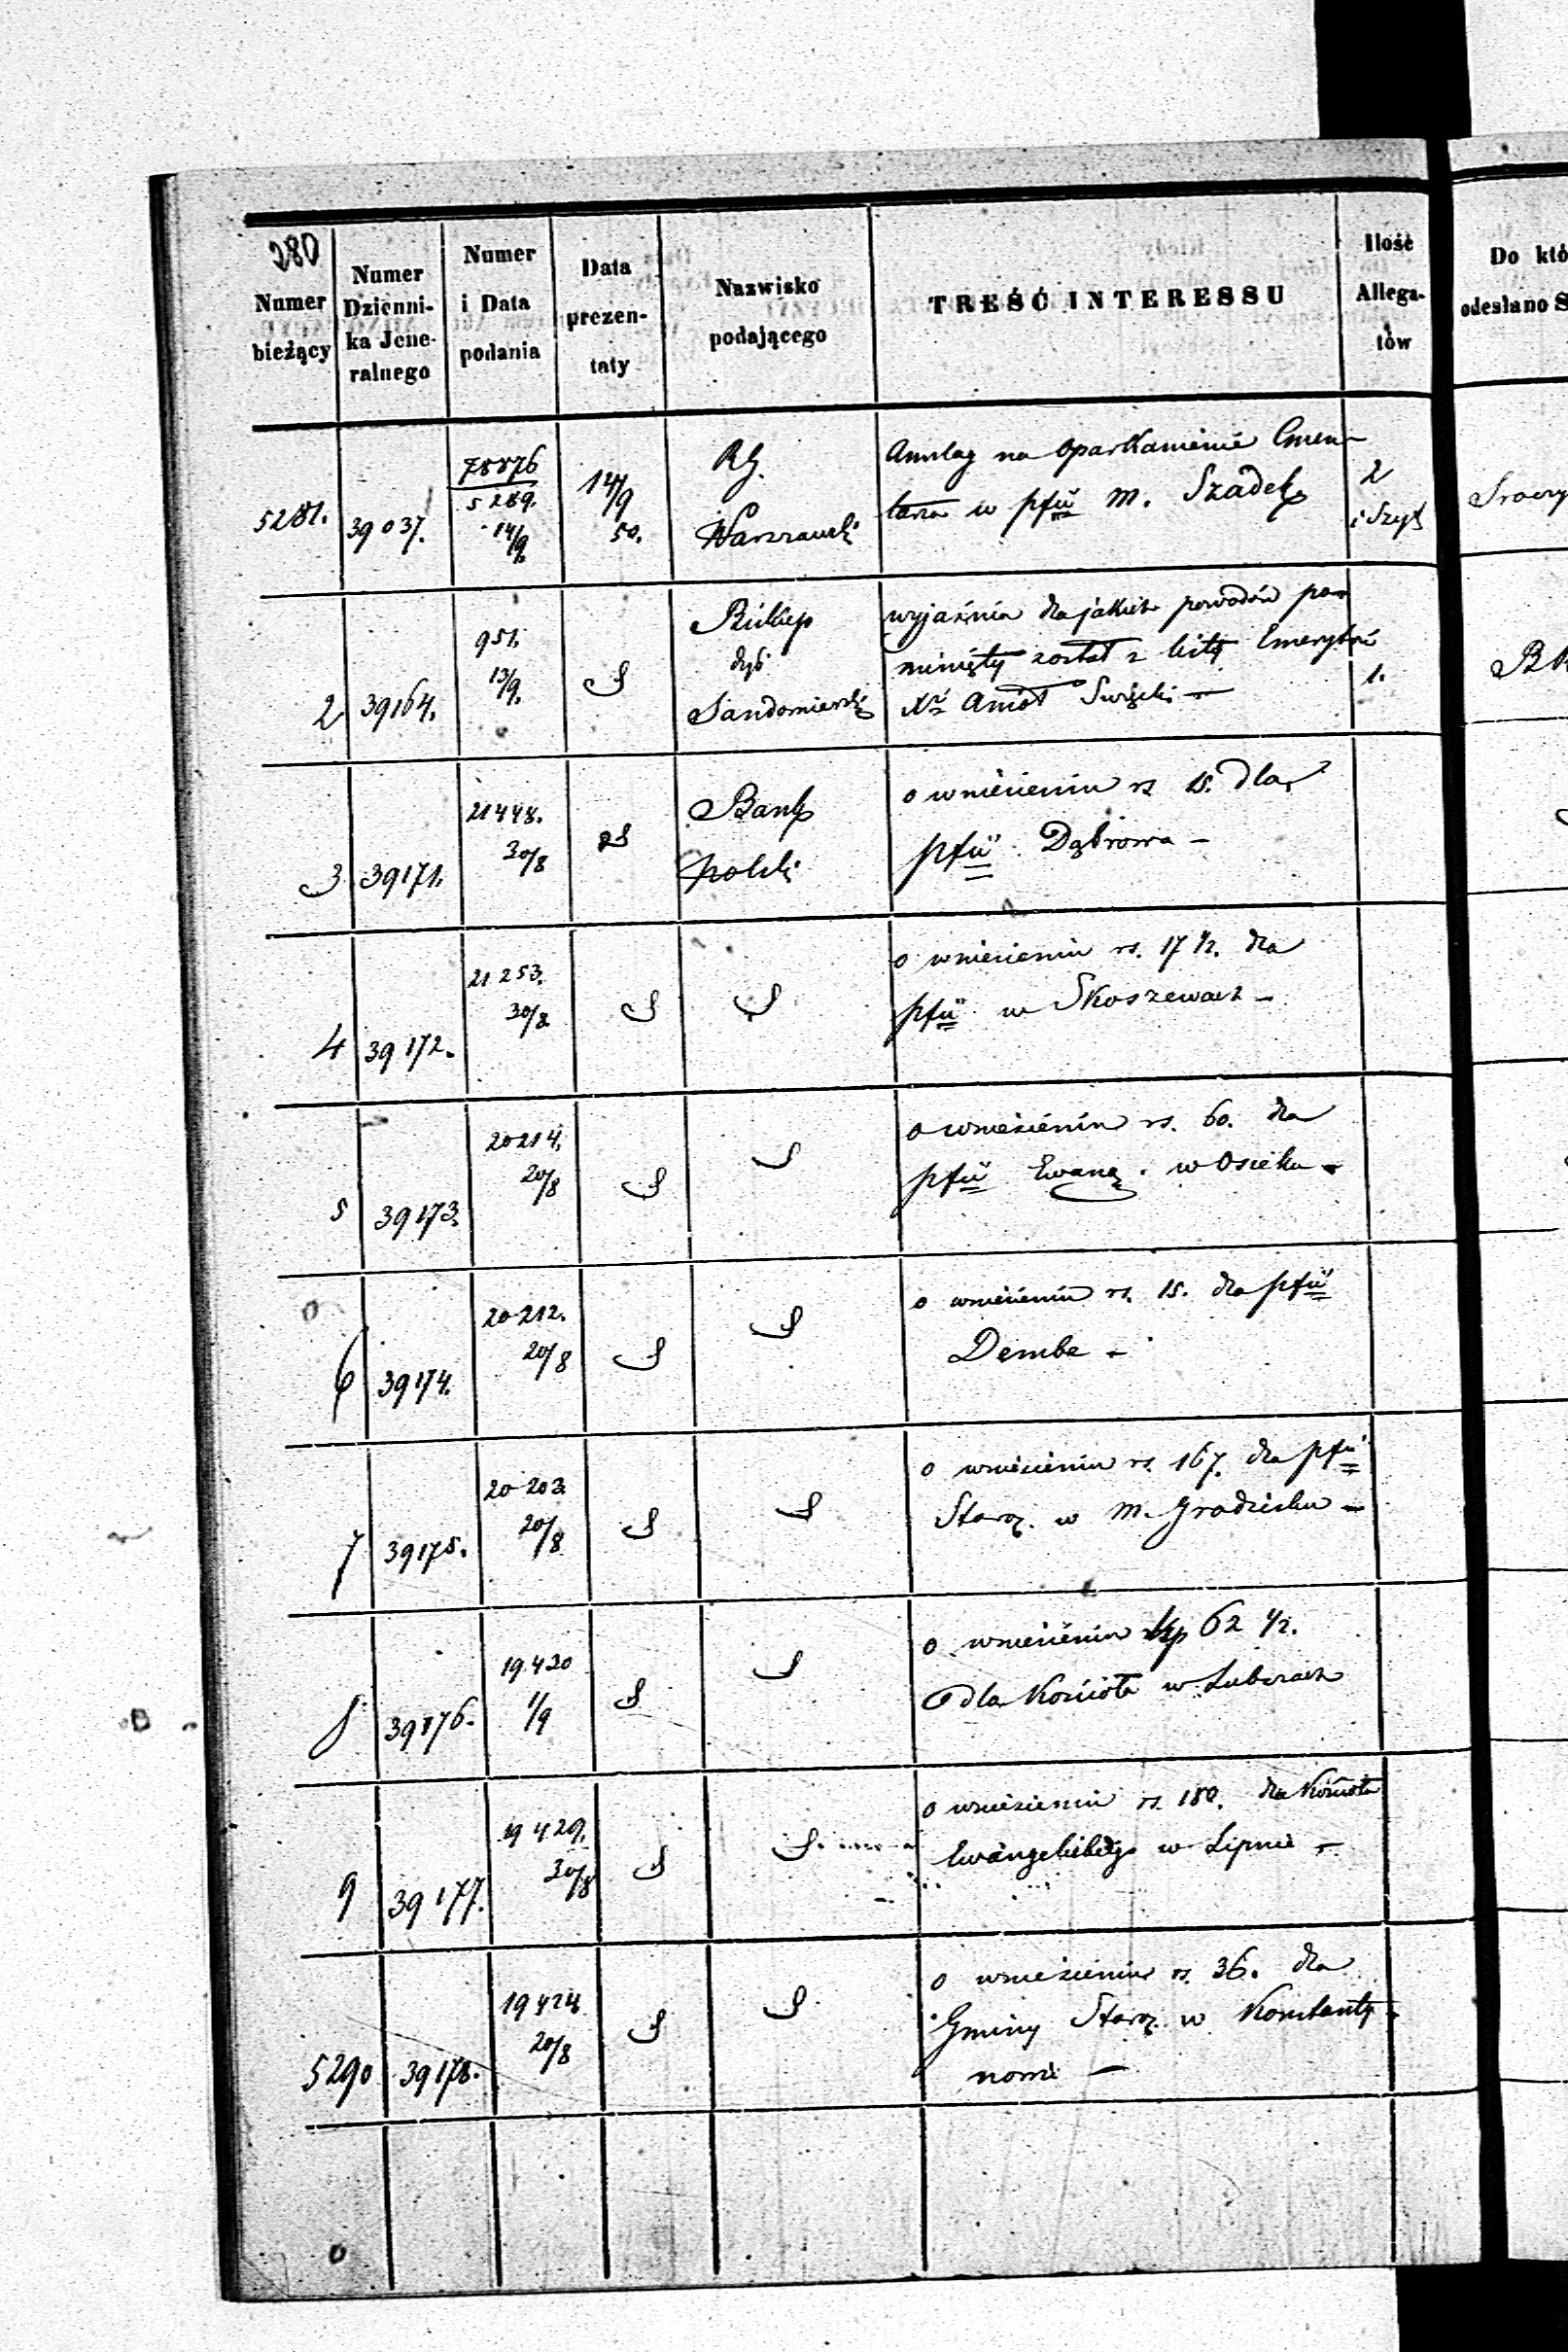 280
Numer
bieżący
Numer
Dzienni-
ka Jene-
ralnego
Numer
i Data
podania
Data
prezen-
taty
Nazwisko
podającego
TREŚĆ INTERESSU
Ilość
Allega-
tów
Do któ
odesłano S
5281.
39037.
78876
5289.
14/9.
14/9
50.
RG.
Warszawski
Anszlag na oparkanienie Cmen-
tarza w pfii M. Szadek
2
i Szyt
2
39164.
951.
13/9.
S
Biskup
dyj.
Sandomierski
wyjaśnia dla jakich powodów po-
minięty został z listy Emerytów
1.
3
39171.
21448.
30/8
S
Bank
Polski
o wniesieniu rs 15. dla
pfii Dąbrowa –
4
39172.
21253.
30/8
S
S
o wniesieniu rs. 17 1/2. dla
pfii w Skoszewach –
5
39173.
20214.
20/8
S
S
o wniesieniu rs. 60. dla
pfii Ewang. w Osieku –
6
39174.
20212.
20/8
S
S
o wniesieniu rs. 15. dla pfii
Dembe –
7
39175.
20203.
20/8
S
S
o wniesieniu rs. 167. dla pfii
Staroz. w M. Grodzisku –
8
39176.
19420
1/9
S
S
o wniesieniu 62 1/2.
dla Kościoła w Luborach
9
39177.
19429.
30/8
S
S
o wniesieniu rs. 180. dla Kościoła
Ewangelickiego w Lipnie –
5290
39178.
19424
20/8
S
S
o wniesieniu rs. 36. dla
Gminy Staroz. w Konstanty-
nowie –